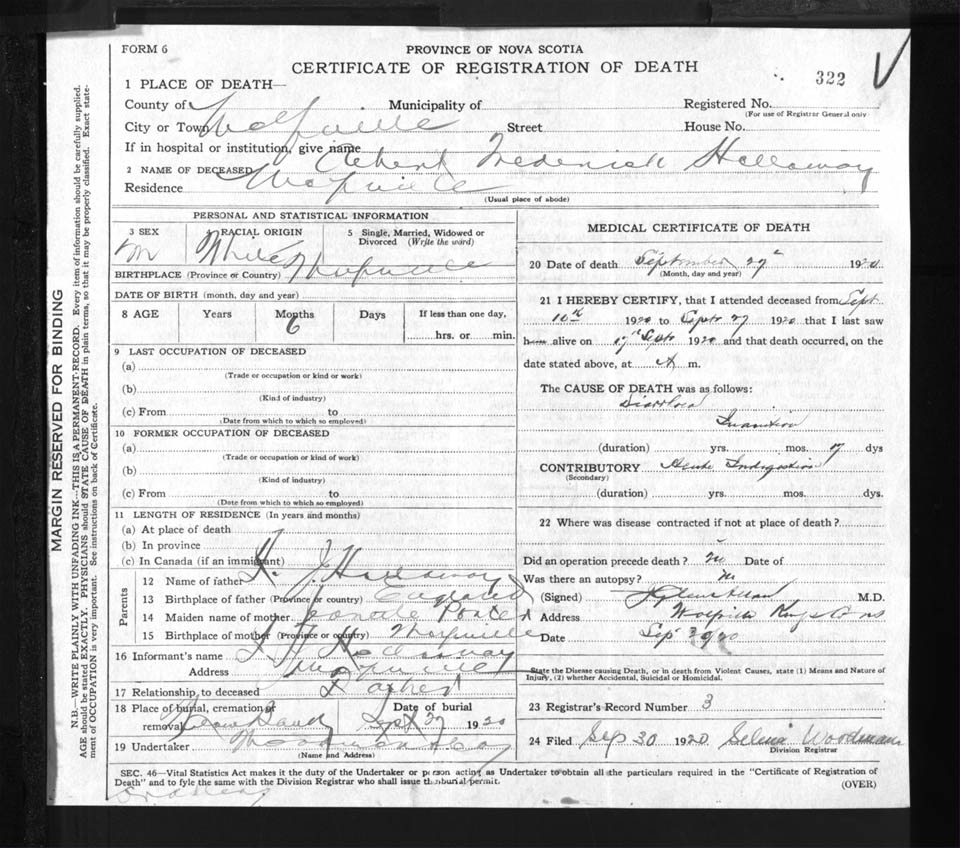 FORM 6
PROVINCE OF NOVA SCOTIA
CERTIFICATE OF REGISTRATION OF DEATH
322
1 PLACE OF DEATH—
County of Municipality of Registered No.
(For use of Registrar General only
City or Town Wolfville Street House No.
If in hospital or institution, give name
2 NAME OF DECEASED Frederick Halloway
Residence
(Usual place of abode)
PERSONAL AND STATISTICAL INFORMATION
3 SEX RACIAL ORIGIN 5 Single, Married, Widowed or Divorced (Write the word)
M White
BIRTHPLACE (Province or Country)
DATE OF BIRTH (month, day and year)
8 AGE Years Months Days If less than one day,
6 hrs. or min.
9 LAST OCCUPATION OF DECEASED
(a)
(Trade or occupation or kind or work)
(b)
(Kind of industry)
(c) From to
(Date from which to which so employed)
10 FORMER OCCUPATION OF DECEASED
(a)
(Trade or occupation or kind of work)
(b)
(Kind of industry)
(c) From to
(Date from which to which so employed)
11 LENGTH OF RESIDENCE (In years and months)
(a) At place of death
(b) In province
(c) In Canada (if an immigrant)
Parents
12 Name of father Halloway
13 Birthplace of father (Province or country) England
14 Maiden name of mother Porter
15 Birthplace of mother (Province or country)
16 Informant's name Halloway
Address
17 Relationship to deceased Father
18 Place of burial, cremation or removal Date of burial
Sept 29 1920
19 Undertaker
(Name and Address)
MEDICAL CERTIFICATE OF DEATH
20 Date of death September 27th 1920
(Month, day and year)
21 I HEREBY CERTIFY, that I attended deceased from Sept
10th 1920 to Sept 27 1920 that I last saw
him alive on Sept 1920 and that death occurred, on the
date stated above, at m.
The CAUSE OF DEATH was as follows:
Diarrhoea
Inanition
(duration) yrs. mos. 7 dys
CONTRIBUTORY Acute Indigestion
(Secondary)
(duration) yrs. mos. dys.
22 Where was disease contracted if not at place of death?
Did an operation precede death? no Date of
Was there an autopsy? no
(Signed) M.D.
Address Wolfville Kings Co NS
Date Sep 1920
State the Disease causing Death, or in death from Violent Causes, state (1) Means and Nature of
Injury, (2) whether Accidental, Suicidal or Homicidal.
23 Registrar's Record Number 3
24 Filed Sep 30 1920 Selina Woodman
Division Registrar
SEC. 46—Vital Statistics Act makes it the duty of the Undertaker or person acting as Undertaker to obtain all the particulars required in the "Certificate of Registration of
Death" and to fyle the same with the Division Registrar who shall issue the burial permit.
(OVER)
MARGIN RESERVED FOR BINDING
N.B.—WRITE PLAINLY WITH UNFADING INK—THIS IS A PERMANENT RECORD. Every item of information should be carefully supplied.
AGE should be stated EXACTLY. PHYSICIANS should STATE CAUSE OF DEATH in plain terms, so that it may be properly classified. Exact state-
ment of OCCUPATION is very important. See instructions on back of Certificate.